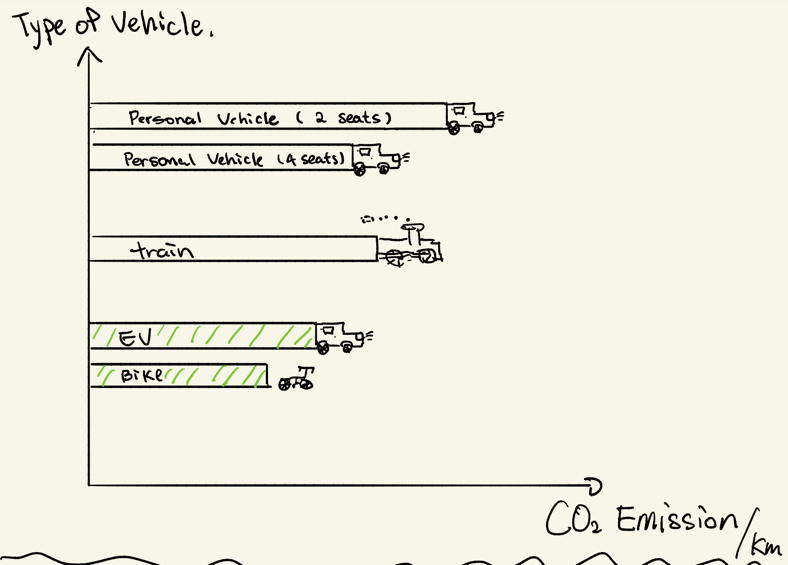 Type of Vehicle.
Personal Vehicle ( 2 seats)
Personal Vehicle (4 seats)
train
EV
Bike
CO₂ Emission/km